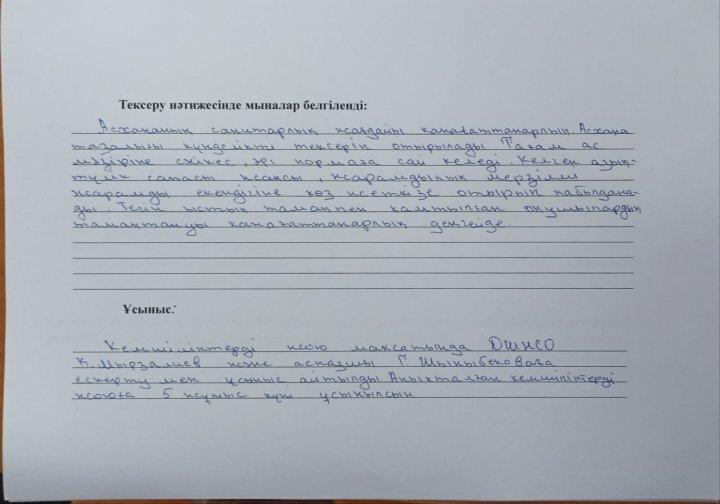 Тексеру нәтижесінде мыналар белгіленді:
Асхананың санитарлық жағдайы қанағаттанарлық. Асхана
тазалығы күнделікті тексеріп отырылады Тағам ас
мәзіріне сәйкес, әрі нормаға сай келеді. Келген азық-
түлік сапасы жақсы, жарамдылық мерзімі
жарамды екендігіне көз жеткізе отырып қабылдана-
ды. Тегін ыстық тамақпен қамтылған оқушылардың
тамақтануы қанағаттанарлық деңгейде.
Ұсыныс:
Кемшіліктерді жою мақсатында ДШИСО
Қ. Мырзалиев және аспазшы Г. Шыныбековаға
ескерту мен ұсыныс айтылды Анықталған кемшіліктерді
жоюға 5 жұмыс күн ұсынылсын